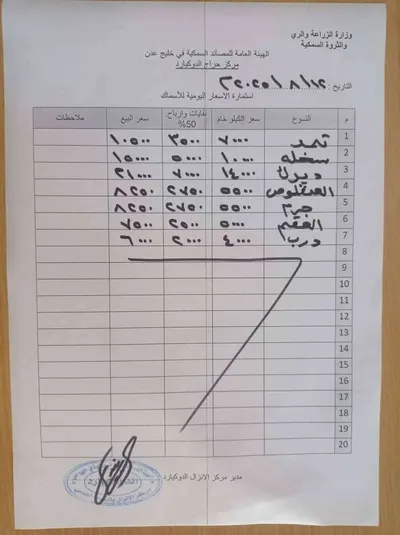 وزارة الزراعة والري
والثروة السمكية
الهيئة العامة للمصائد السمكية في خليج عدن
مركز حراج الدوكيارد
التاريخ: ١٢/ ٨ /٢٠٢٥
استمارة الاسعار اليومية للأسماك
م النوع سعر الكيلو خام نفايات وارباح 50% سعر البيع ملاحظات
1 ثمد ٧٠٠٠ ٣٥٠٠ ١٠٥٠٠
2 سخله ١٠٠٠٠ ٥٠٠٠ ١٥٠٠٠
3 ديرك ١٤٠٠٠ ٧٠٠٠ ٢١٠٠٠
4 ٥٥٠٠ ٢٧٥٠ ٨٢٥٠
5 جرم ٥٥٠٠ ٢٧٥٠ ٨٢٥٠
6 ٥٠٠٠ ٢٥٠٠ ٧٥٠٠
7 درب ٤٠٠٠ ٢٠٠٠ ٦٠٠٠
8
9
10
11
12
13
14
15
16
17
18
19
20
مدير مركز الانزال الدوكيارد